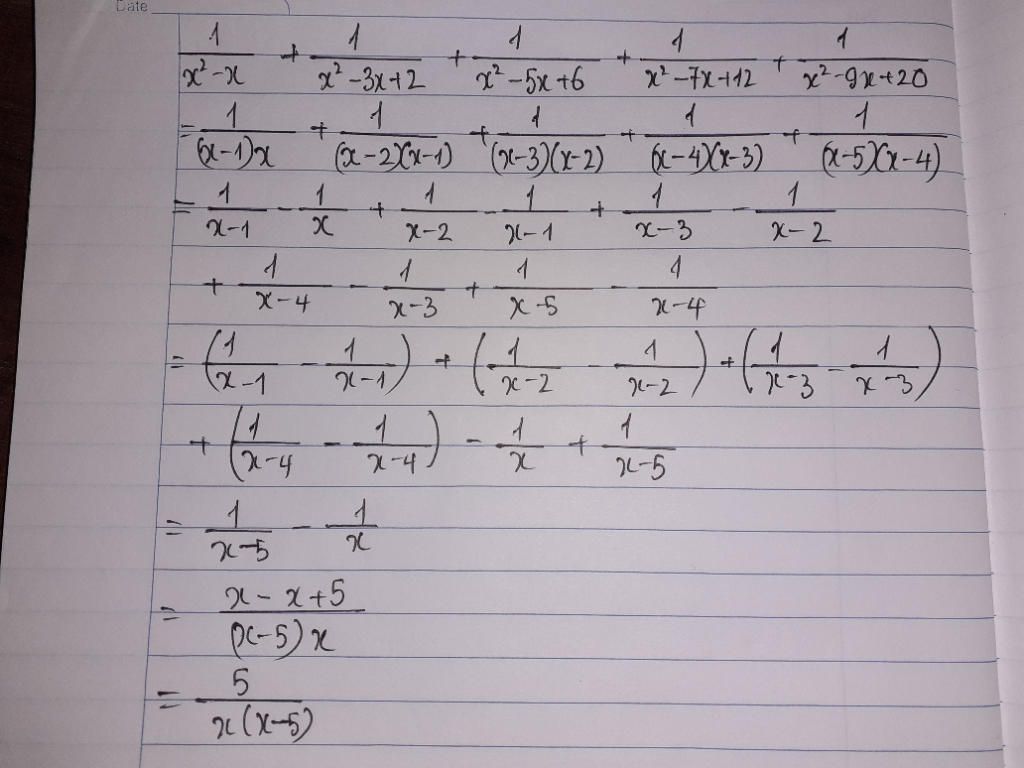 Date
1/(x²-x) + 1/(x²-3x+2) + 1/(x²-5x+6) + 1/(x²-7x+12) + 1/(x²-9x+20)
= 1/((x-1)x) + 1/((x-2)(x-1)) + 1/((x-3)(x-2)) + 1/((x-4)(x-3)) + 1/((x-5)(x-4))
= 1/(x-1) - 1/x + 1/(x-2) - 1/(x-1) + 1/(x-3) - 1/(x-2)
+ 1/(x-4) - 1/(x-3) + 1/(x-5) - 1/(x-4)
= (1/(x-1) - 1/(x-1)) + (1/(x-2) - 1/(x-2)) + (1/(x-3) - 1/(x-3))
+ (1/(x-4) - 1/(x-4)) - 1/x + 1/(x-5)
= 1/(x-5) - 1/x
= (x-x+5)/((x-5)x)
= 5/(x(x-5))